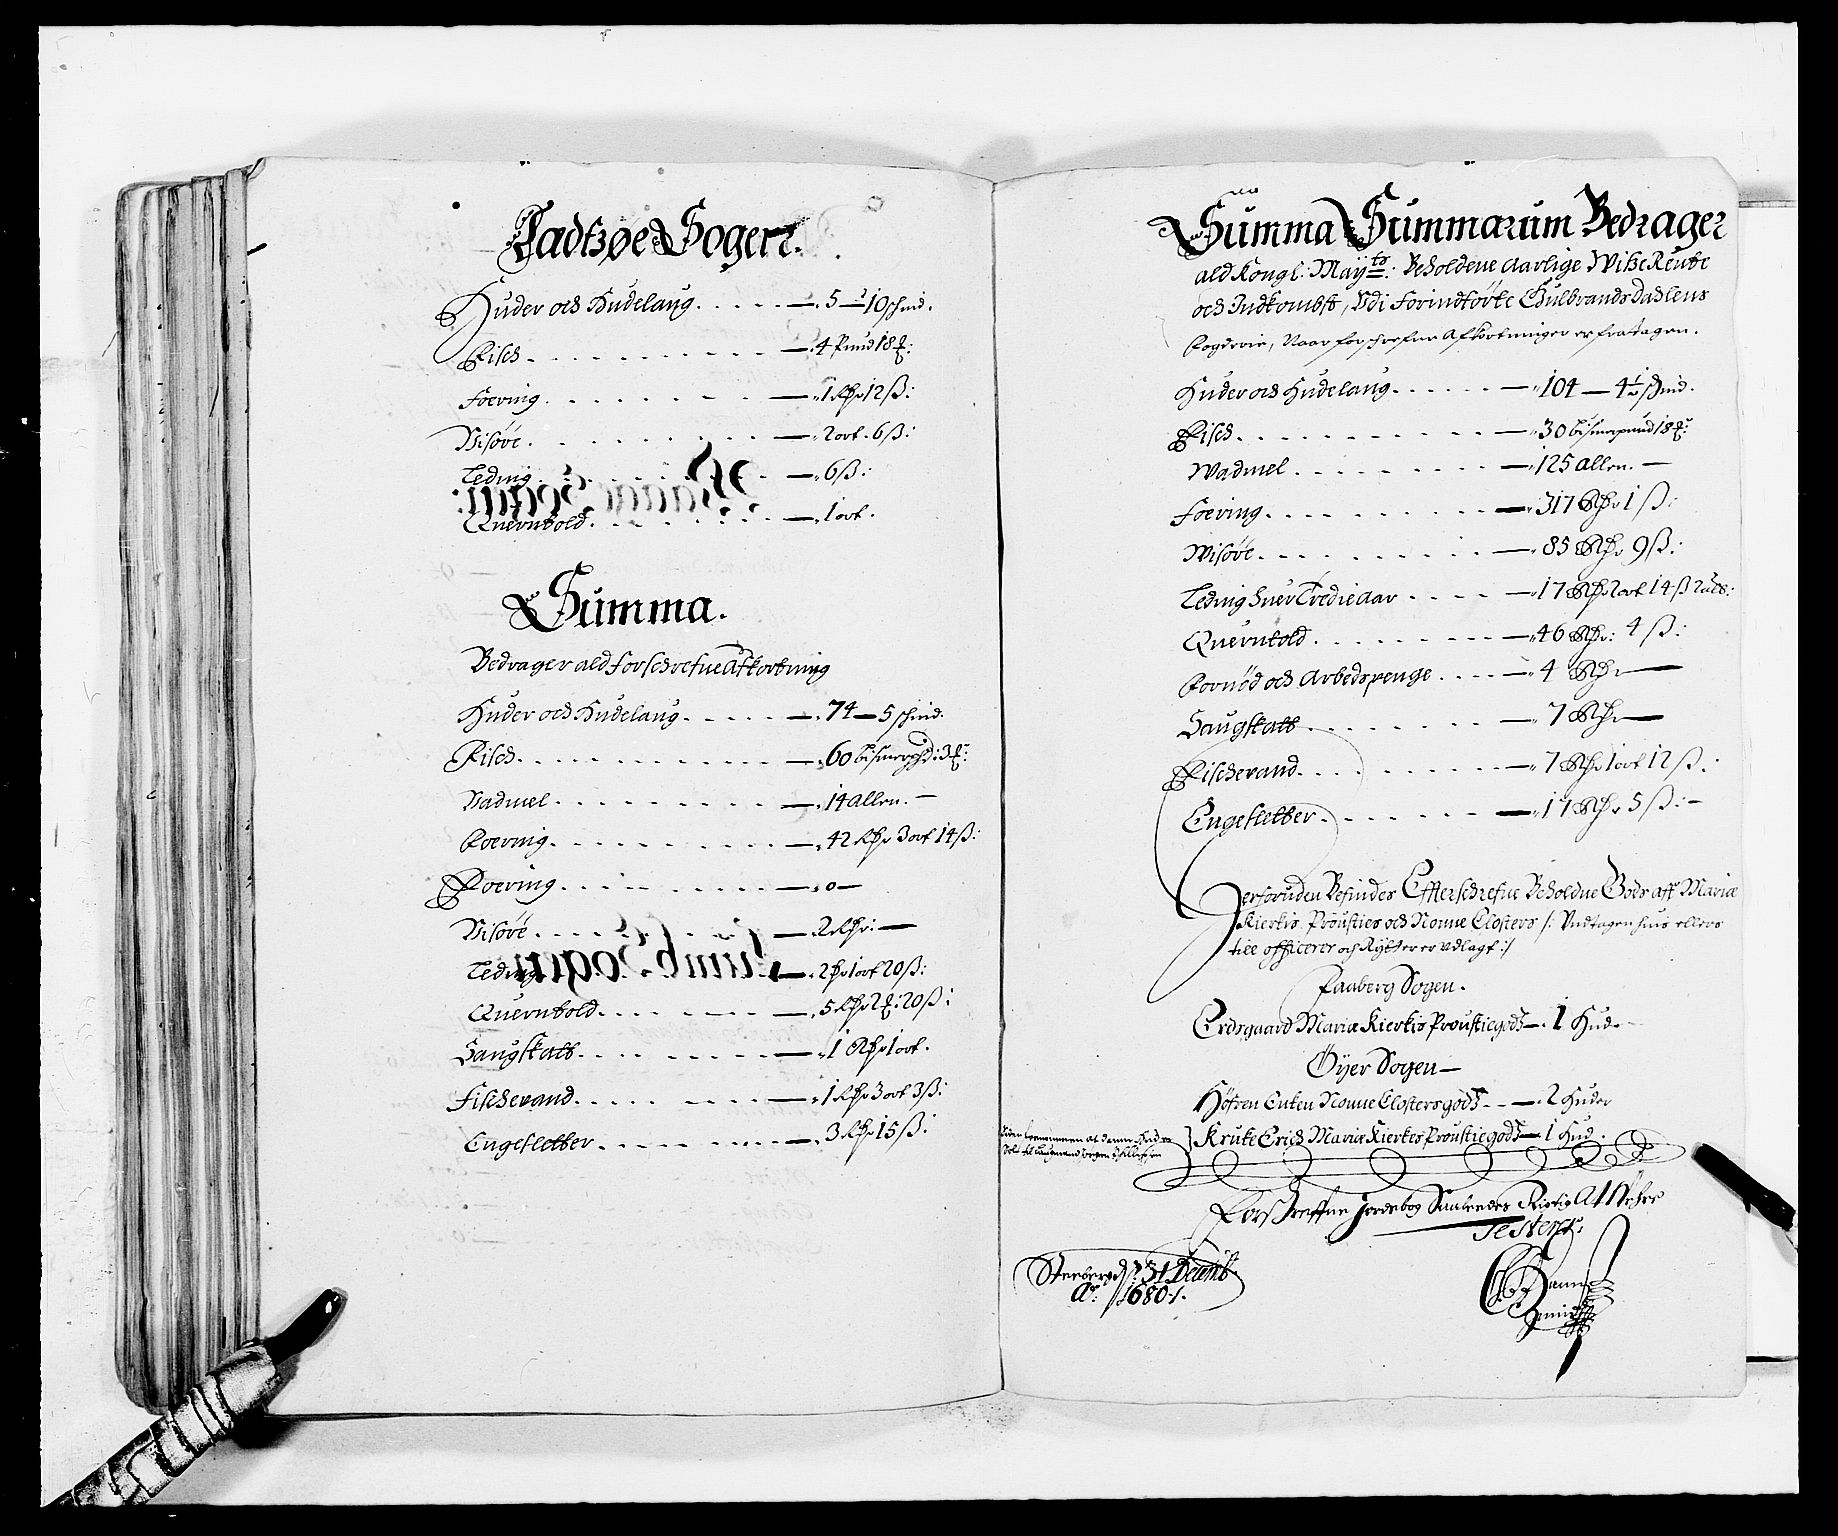 Jadtzøe Sogen.
Huder och Hudelaug. . . . . — 5 — 10 schind.
Fisch . . . . . . . — 4 Pund 18 ℔:
Foering . . . . . — 1 Rdr 12 ß:
Visøre . . . . . . — 2 ort. 6 ß:
Leding . . . . . . — 6 ß:
Querntold . . . . . — 1 ort.
Summa.
Bedrager ald forschrefne Afkortning
Huder och Hudelaug . . . . — 74 — 5 schind.
Fisch . . . . . . . — 60 bismerpd: 3 ℔:
Vadmel . . . . . . . — 14 allen. —
Foering . . . . . . — 42 Rdr 3 ort 14 ß:
Foering . . . . . . — 0 —
Visøre . . . . . . — 2 Rdr: —
Leding . . . . . . — 2 Rdr 1 ort 20 ß:
Querntold . . . . . — 5 Rdr 2 20 ß:
Saugskatt . . . . . — 1 Rdr 1 ort.
Fischevand . . . . . — 1 Rdr 3 ort 3 ß:
Engesletter . . . . . — 3 Rdr 15 ß:
Summa Summarum Bedrager
ald Kongl: May:ts: Beholdene Aarlige Visse Rente
och Indkombst, Udi forindførte Gulbrandsdahlens
Fogderie, Naar forschrefne Afkortninger er fratagen.
Huder och Hudelaug . . . . — 104 — 4½ schind.
Fisch . . . . . . . — 30 bismerpund 18 ℔:
Wadmel . . . . . . — 125 allen. —
Foering . . . . . . — 317 Rdr 1 ß:
Wisøre . . . . . . — 85 Rdr 9 ß:
Leding huer Tredie Aar . . . . — 17 Rdr 2 ort 14 ß
Querntold . . . . . — 46 Rdr: 4 ß:
Fornød och Arbedspenge . . . . — 4 Rdr —
Saugskatt . . . . . — 7 Rdr —
Fischevand . . . . . — 7 Rdr 1 ort 12 ß:
Engesletter . . . . . — 17 Rdr 5 ß: —
Derforuden Befindes Effterschrefne Beholdne Gods aff Mariæ
Kierkis Prousties och Nonne Closters /: Undtagen huis ellers
till officerer och Rytter er udlagt :/
Faaberg Sogen.
Erdsgaard Mariæ Kierkis Proustiegodtz — 1 Hud. —
Öyer Sogen —
Høfren Enken Nonne Clostersgodtz — 2 Huder
Kruke Erich Mariæ Kierkes Proustiegodtz — 1 Hud.
Forschreffne Jordebog Saaledes Rigtig At Were
Testerer
Steeberg d: 31 Decemb:
Ao: 1680.
Hanns